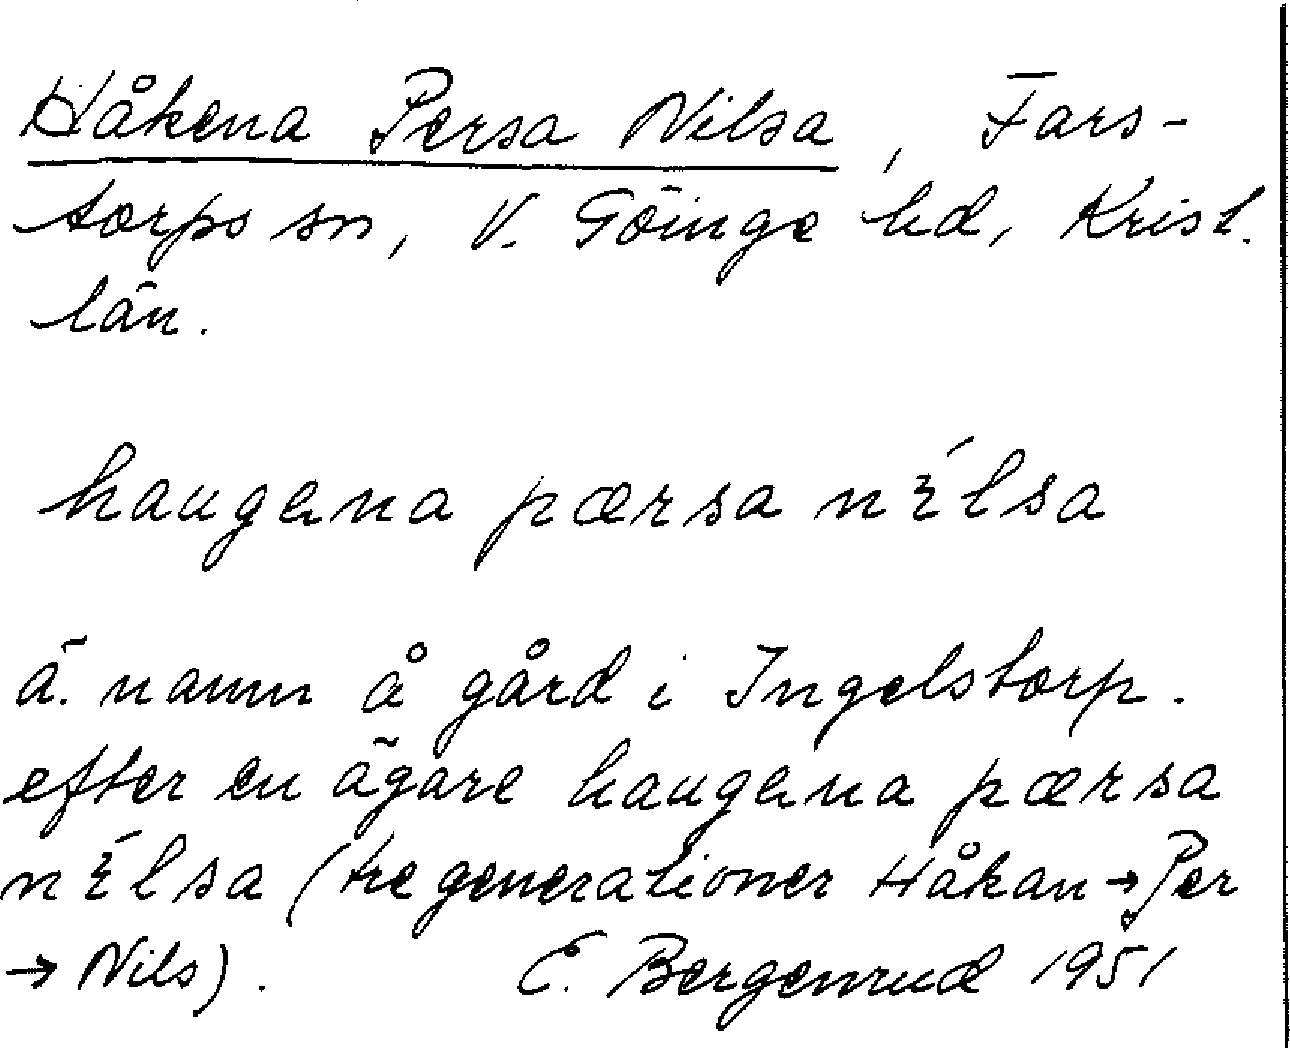 Håkena Persa Nilsa, Fars-
torps sn, V. Göinge hd, Krist.
län.
haugena pærsa nílsa
ä. namn å gård i Ingelstorp.
efter en ägare haugena pærsa
nílsa (tre generationer Håkan → Per
→ Nils). E. Bergenrud 1951